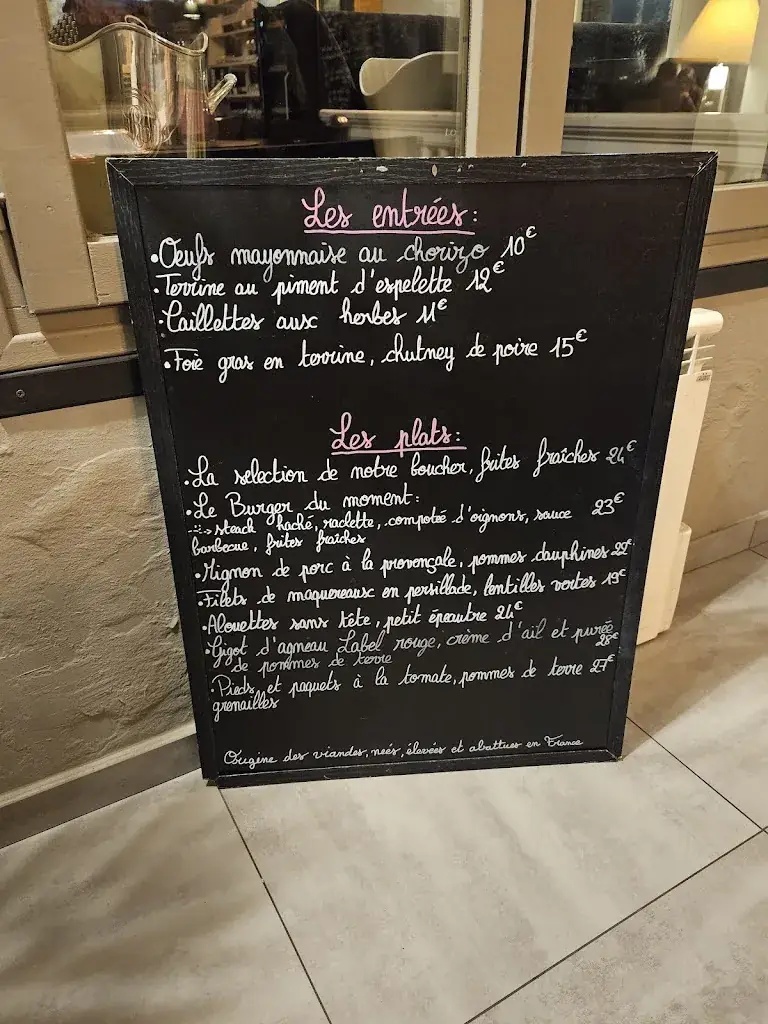 Les entrées:
•Oeufs mayonnaise au chorizo 10€
•Terrine au piment d'espelette 12€
•Caillettes aux herbes 11€
•Foie gras en terrine, chutney de poire 15€
Les plats:
•La selection de notre boucher, frites fraîches 24€
•Le Burger du moment:
→ steack haché, raclette, compotée d'oignons, sauce 23€
barbecue, frites fraîches
•Mignon de porc à la provençale, pommes dauphines 22€
•Filets de maquereaux en persillade, lentilles vertes 19€
•Alouettes sans tête, petit épeautre 24€
•Gigot d'agneau Label rouge, crème d'ail et purée
de pommes de terre 28€
•Pieds et paquets à la tomate, pommes de terre 27€
grenailles
Origine des viandes, nées, élevées et abattues en France